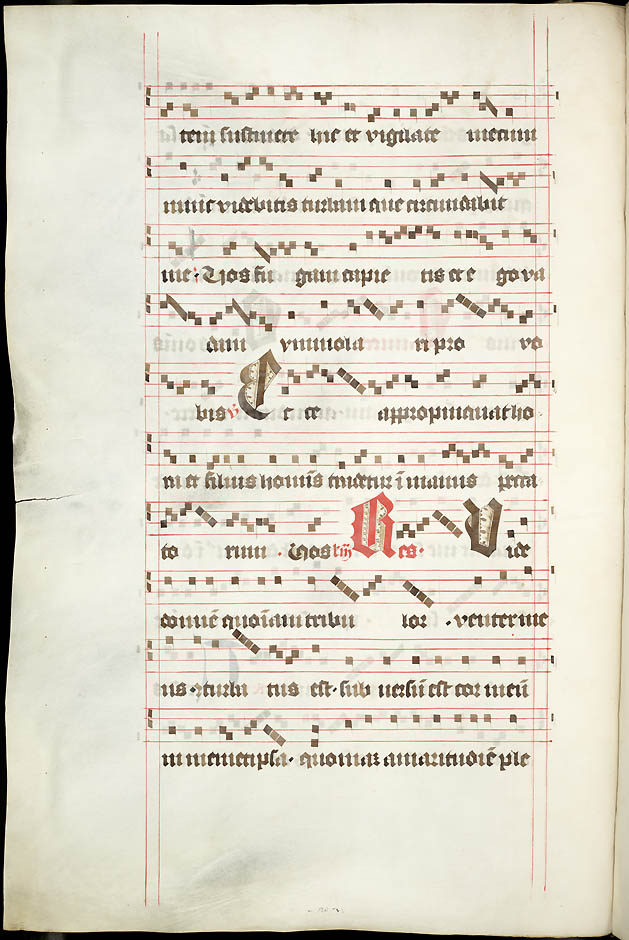 tem sustinete hic et vigilate mecum
nunc videbitis turbam que circumdabit
me · Vos fu gam capie tis et e go va
dam ymmola ri pro vo
bis · V̓ E c ce · appropinquat ho
ra et filius hoīs tradetur ī manus pecca
to rum · Vos Lm̄ Res · Vide
domīe quoīam tribu lor · venter me
us · Ꝯturba tus est · sub versū est cor meū
in memetipsa · quoniaʒ amaritudīe ple